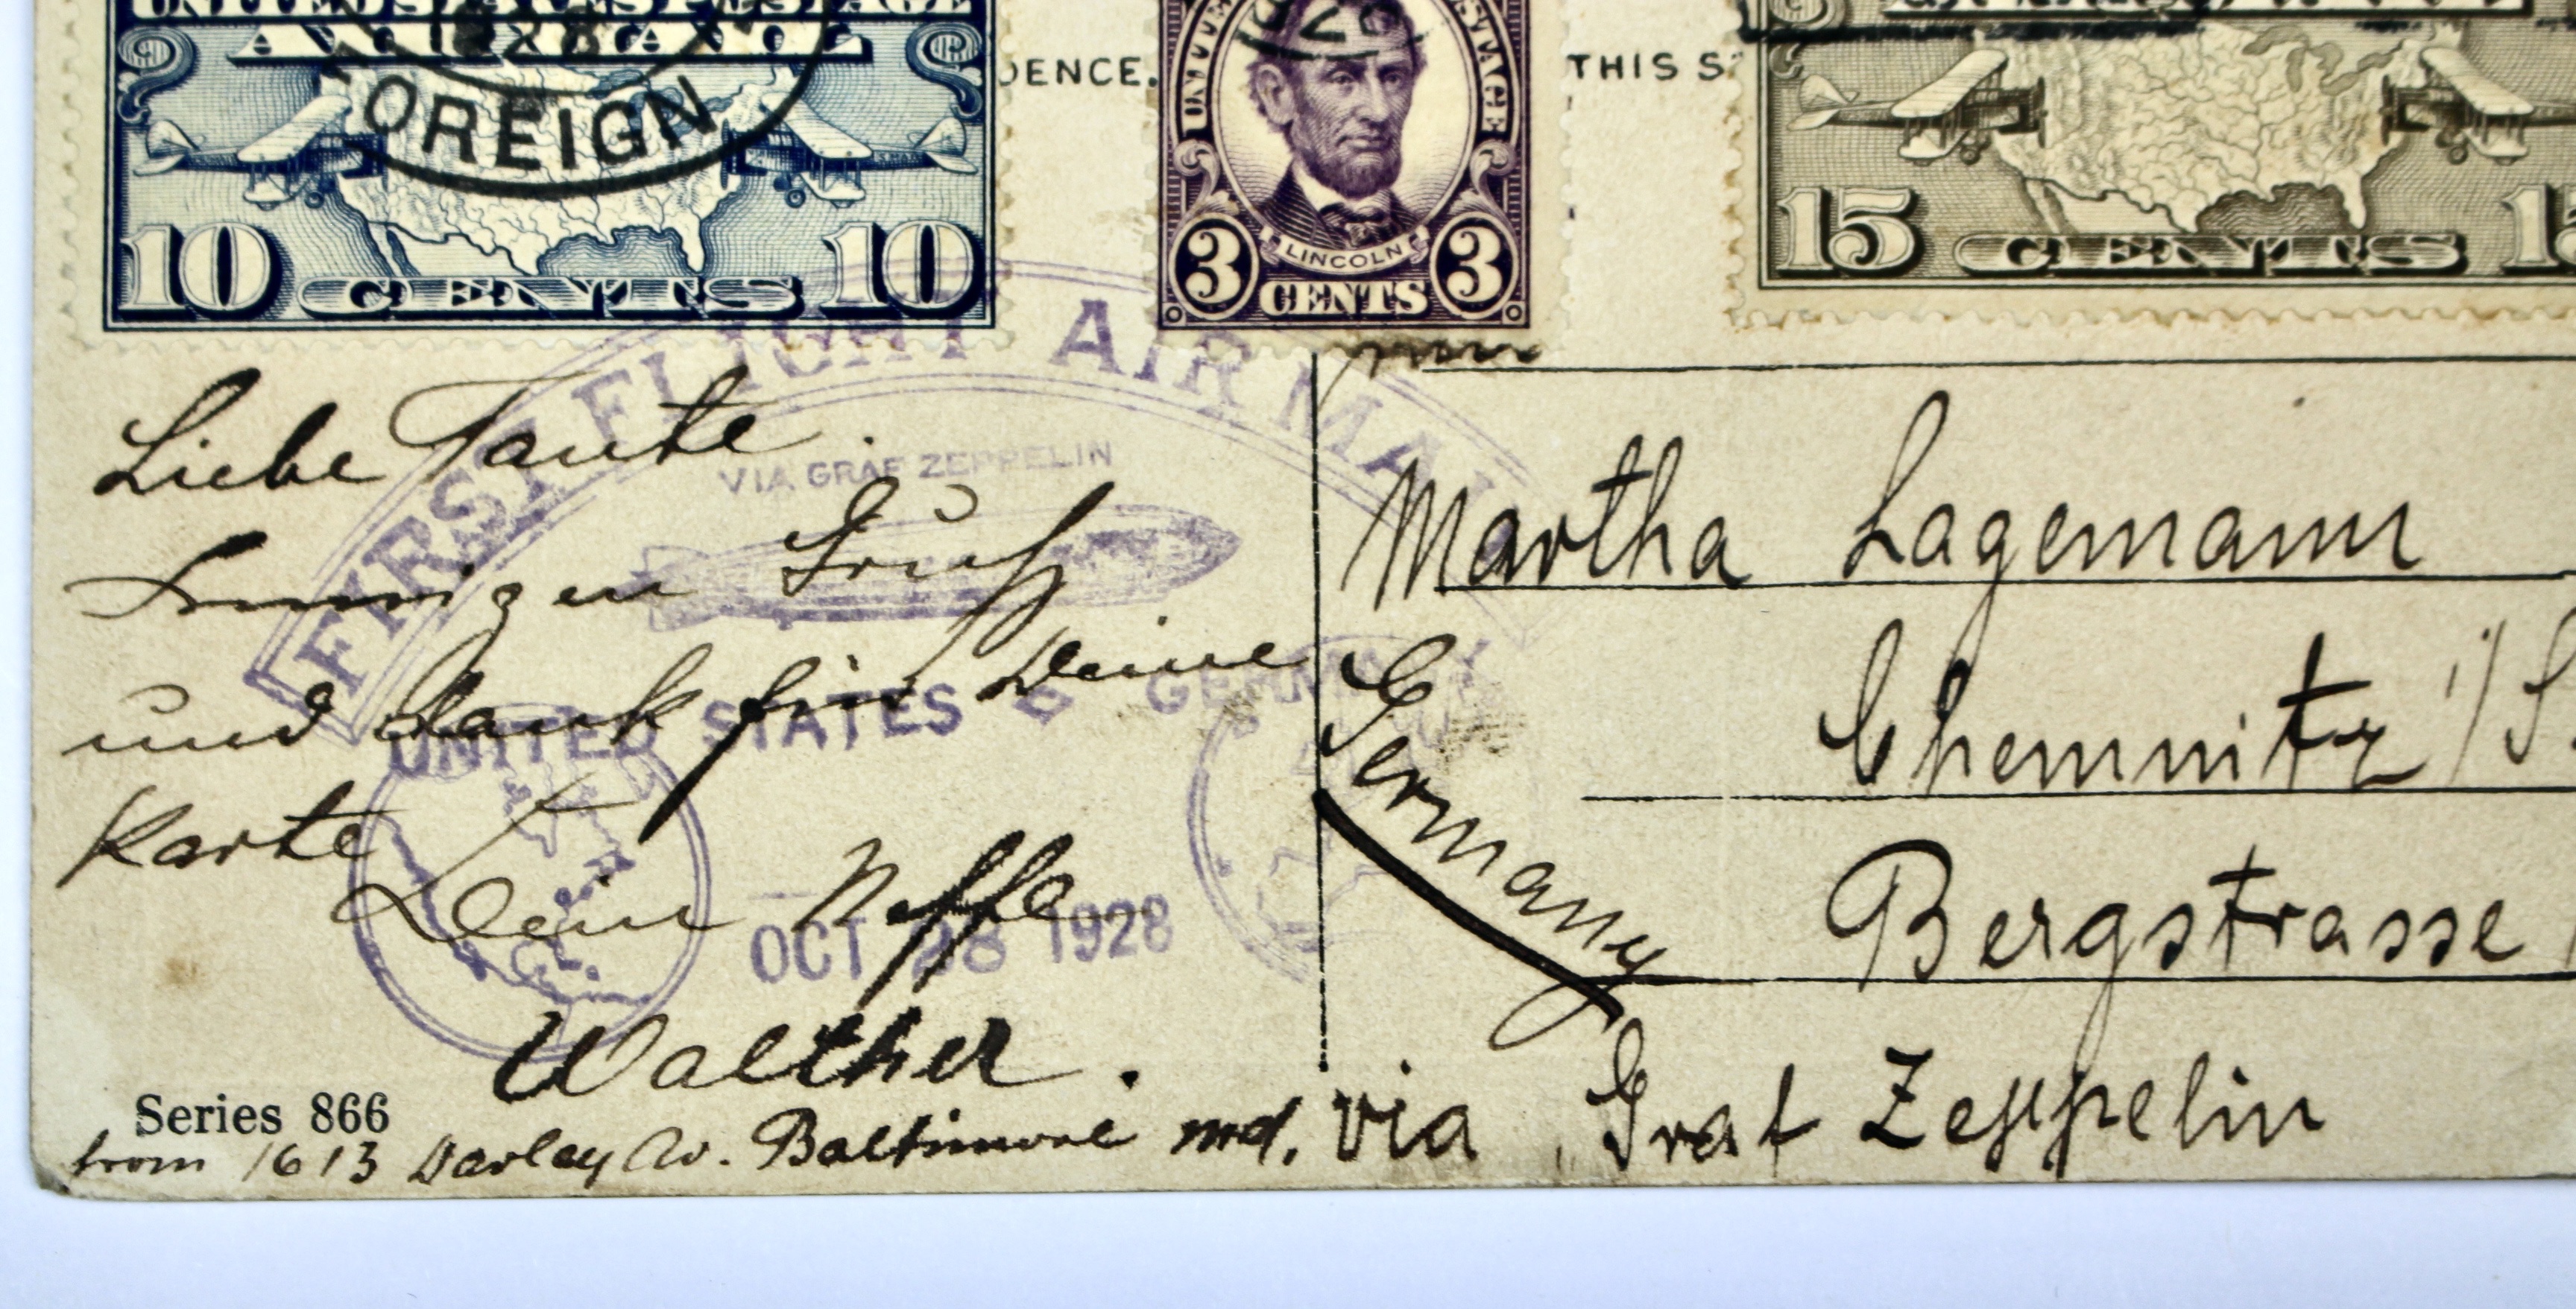 UNITED STATES POSTAGE
AIR MAIL
1928
OREIGN
10 CENTS 10
DENCE.
LINCOLN
3 CENTS 3
THIS S
15 CENTS 15
FIRST FLIGHT AIR MAIL
VIA GRAF ZEPPELIN
UNITED STATES GERMANY
OCT 28 1928
Liebe Tante.
Innigen Gruß
und Dank für Deine
Karte
Dein Neffe
Walther.
Series 866
from 1613 Darley Av. Baltimore Md.
Martha Lagemann
Chemnitz i/S.
Germany
Bergstrasse
via Graf Zeppelin